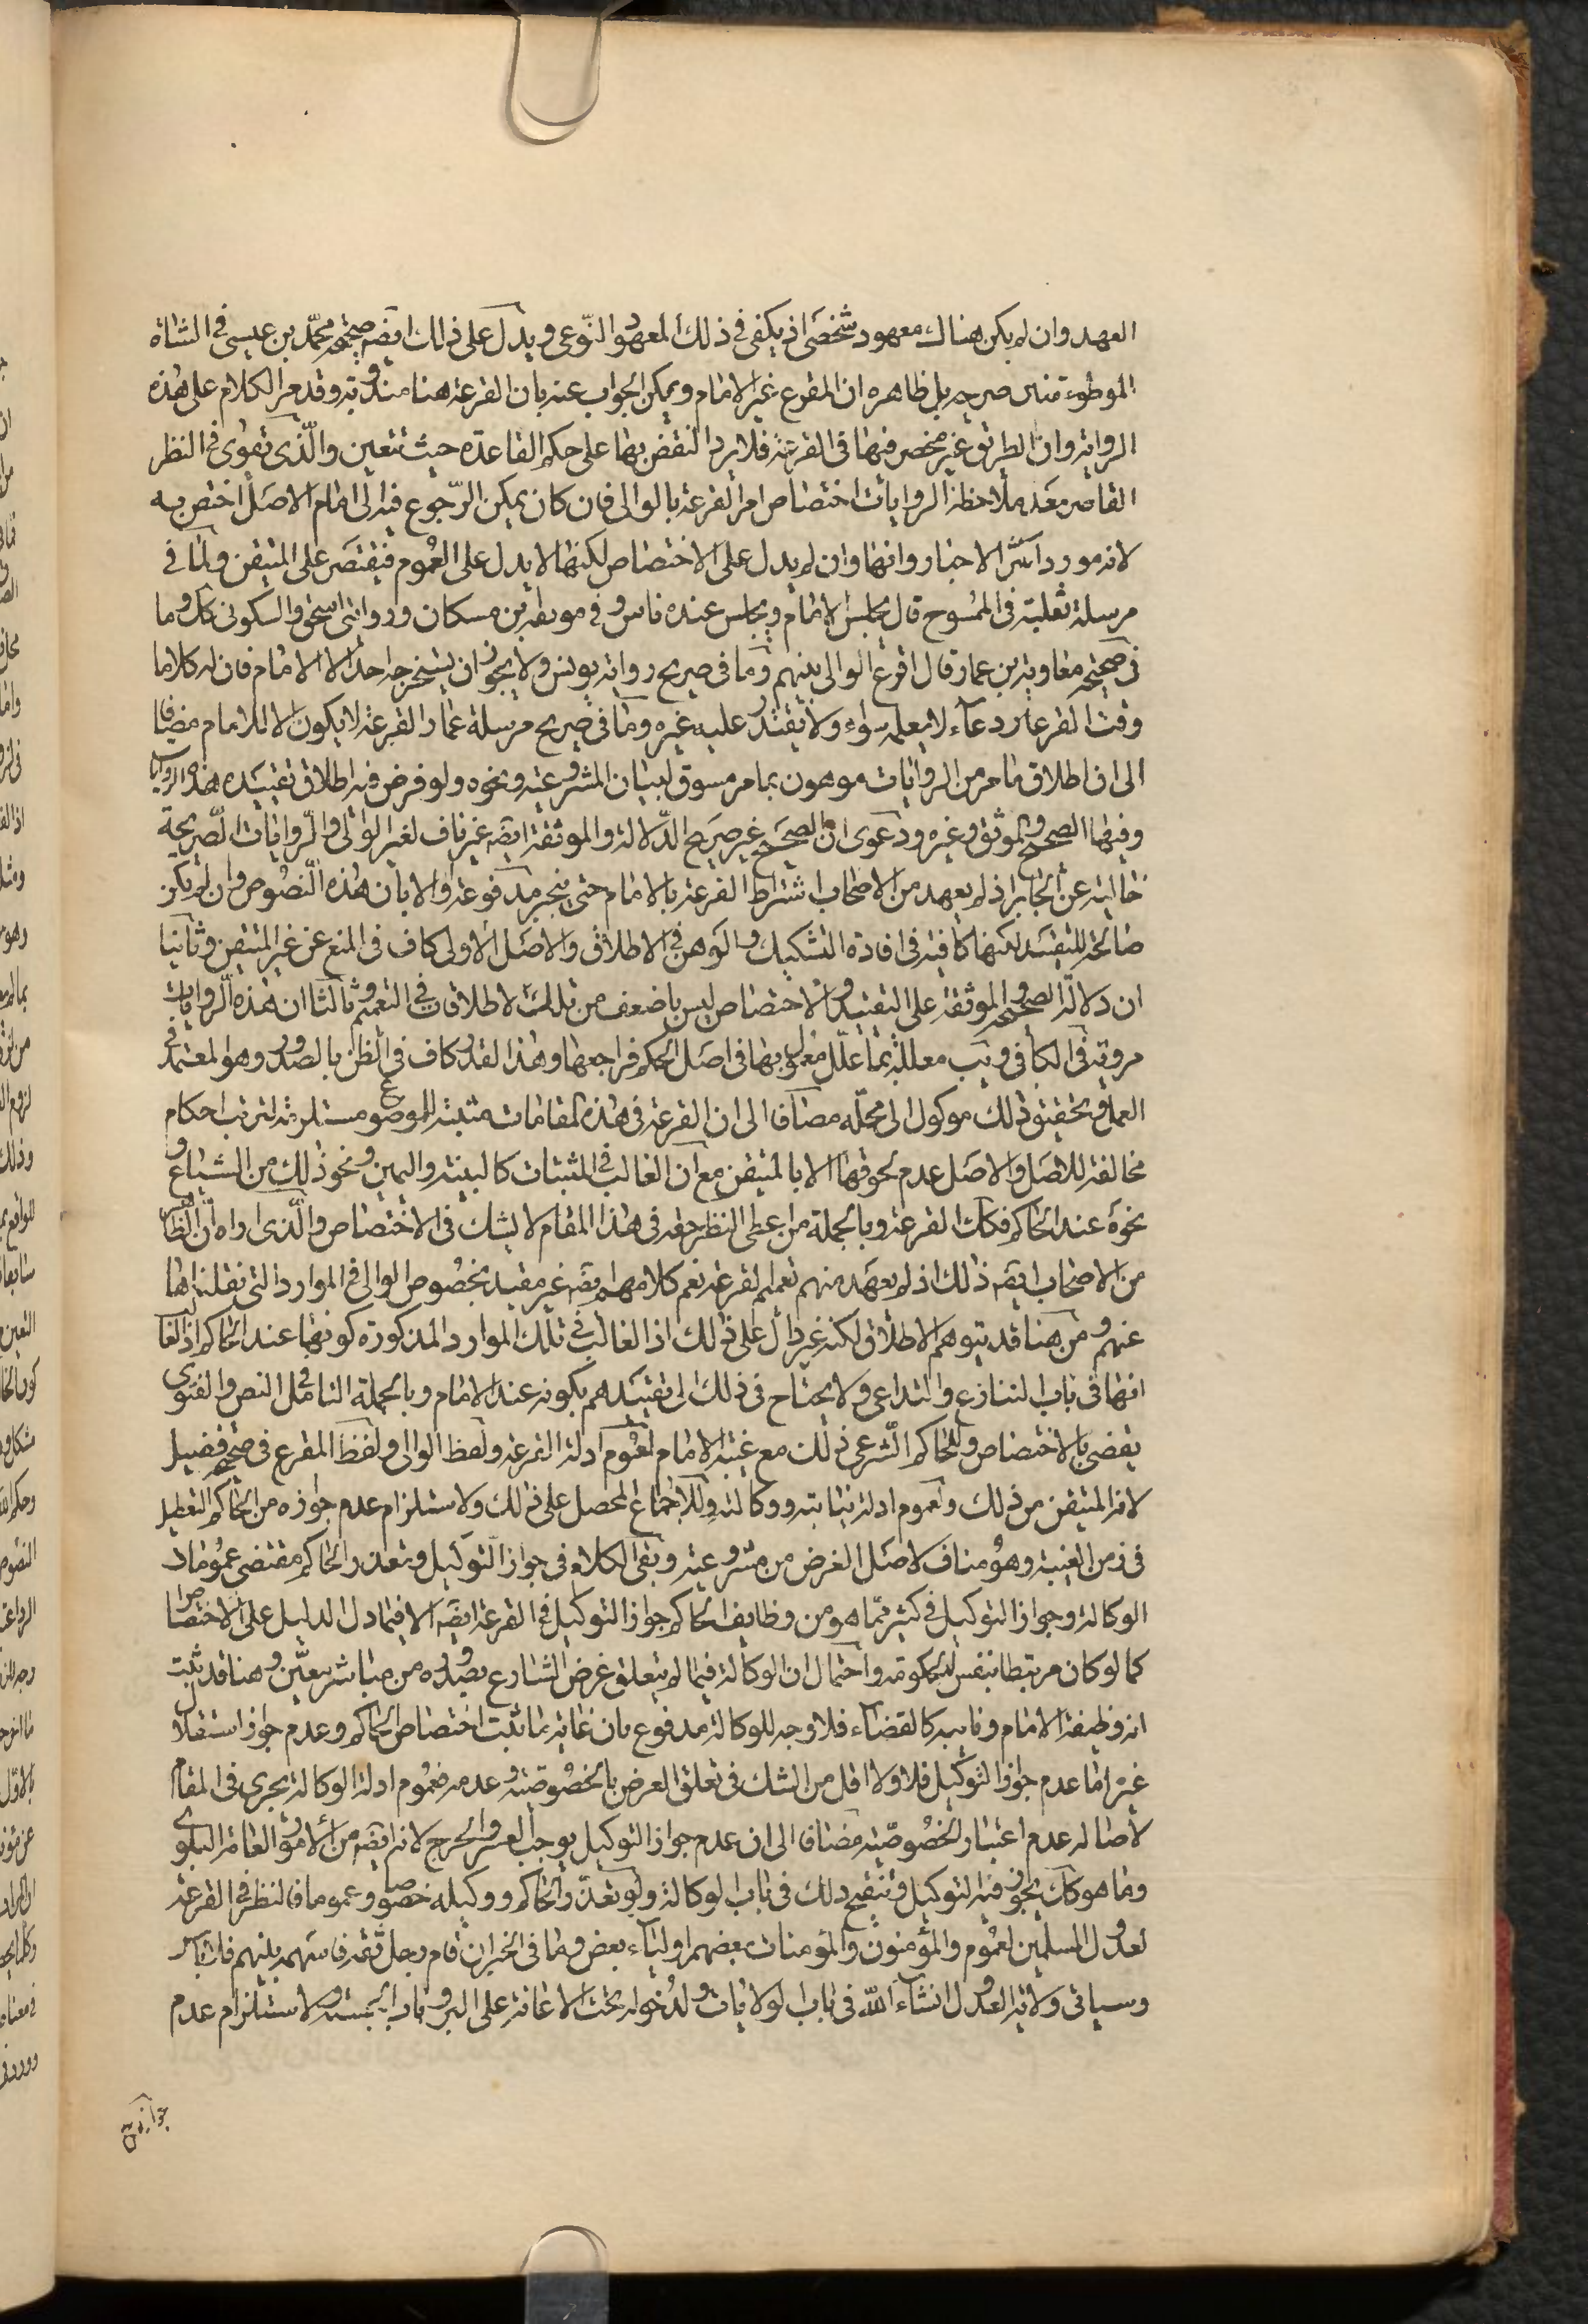 العهد وان لم يكن هناك معهود شخصى اذ يكفى فى ذلك المعهود النّوعى ويدل على ذلك ايضا صحيحة محمّد بن عيسى فى الشاة
الموطوءة من صريحه بل ظاهره ان المقرع غير الامام ويمكن الجواب عنه بان القرعة هنا مندوبة وقد مر الكلام على هذه
الرواية وان الطريق غير منحصر فيها فى القرعة فلا يرد النقض بها على حكم القاعدة حيث تتعين والّذى يقوى فى النظر
القاصر بعد ملاحظة الروايات اختصاص امر القرعة بالوالى فان كان يمكن الرّجوع فيه الى امام الاصل اختص به
لانه مورد اكثر الاخبار وانها وان لم يدل على الاختصاص لكنها لا يدل على العموم فيقتصر على المتيقن ولما فى
مرسلة ثعلبة فى الممسوح قال يجلس الامام ويجلس عنده ناس وفى موثقة بن مسكان وروايتى اسحق والسكونى كك وما
فى صحيحة معاوية بن عمار قال اقرع الوالى بينهم وما فى صريح رواية يونس ولا يجوز ان يستخرجه احد الا الامام فان له كلاما
وقت القرعة ودعاء لا يعلمه سواه ولا يقتدر عليه غيره وما فى صريح مرسلة حماد القرعة لا يكون الا للامام مضافا
الى ان اطلاق ما مر من الروايات موهون بما مر مسوق لبيان المشروعية ونحوه ولو فرض فيه اطلاق تقيده هذه الروايات
وفيها الصحيح والموثق وغيره ودعوى ان الصحيح غير صريح الدّلالة والموثقة ايضا غير ناف لغير الوالى والروايات الصّريحة
خالية عن الجابر اذ لم يعهد من الاصحاب اشتراط القرعة بالامام حتى ينجبر مدفوعة اولا بان هذه النصوص وان لم يكن
صالحة للتقييد لكنها كافية فى افادة التشكيك والوهن فى الاطلاق والاصل الاولى كاف فى المنع عن غير المتيقن وثانيا
ان دلالة الصحيحة والموثقة على التقييد والاختصاص ليس باضعف من تلك الاطلاقات فى التعميم وثالثا ان هذه الروايات
مروية فى الكافى ويب معللة بما علّل معمول بها فى اصل الحكم فراجعها وهذا القدر كاف فى الظن بالصدور وهو المعتمد فى
العمل وتحقيق ذلك موكول الى محلّه مضافا الى ان القرعة فى هذه المقامات مثبتة للموضوع مستلزمة لترتب احكام
مخالفة للاصل والاصل عدم لحوقها الا بالمتيقن مع ان الغالب فى المثبتات كالبينة واليمين ونحو ذلك من الشياع و
نحوه عند الحاكم فكك القرعة وبالجملة من اعطى النظر حقه فى هذا المقام لا يشك فى الاختصاص والّذى اراه ان الظاهر
من الاصحاب ايضا ذلك اذ لم يعهد منهم تعميم القرعة نعم كلامهم ايضا غير مقيد بخصوص الوالى فى الموارد التى نقلناها
عنهم ومن هنا قد يتوهم الاطلاق لكنه غير دال على ذلك اذ الغالب فى تلك الموارد المذكورة كونها عند الحاكم اذ الغالب
انها فى باب التنازع والتداعى ولا يحتاج فى ذلك الى تقييدهم بكونه عند الامام وبالجملة التامل فى النص والفتوى
يقضى بالاختصاص وللحاكم الشرعى ذلك مع غيبة الامام لعموم ادلة القرعة ولفظ الوالى ولفظ المقرع فى صحيحة فضيل
لانه المتيقن من ذلك ولعموم ادلة نيابته ووكالته وللاجماع المحصل على ذلك ولاستلزام عدم جوازه من الحاكم التعطيل
فى زمن الغيبة وهو مناف لاصل الغرض من مشروعيته وبقى الكلام فى جواز التوكيل وتعذر الحاكم مقتضى عمومات
الوكالة وجواز التوكيل فى كثير مما هو من وظايف الحاكم جواز التوكيل فى القرعة ايضا الا فيما دل الدليل على الاختصاص
كما لو كان مرتبطا بنفس الحكومة واحتمال ان الوكالة فيما لم يتعلق غرض الشارع بصدوره من مباشر معيّن وهنا قد ثبت
انه وظيفة الامام ونايبه كالقضاء فلا وجه للوكالة مدفوع بان غاية ما ثبت اختصاص الحاكم وعدم جواز استقلال
غيره اما عدم جواز التوكيل فلا ولا اقل من الشك فى تعلق الغرض بالخصوصية وعدمه فعموم ادلة الوكالة يجرى فى المقام
لاصالة عدم اعتبار الخصوصية مضافا الى ان عدم جواز التوكيل يوجب العسر والحرج لانه ايضا من الامور العامة البلوى
وما هو كك يجوز فيه التوكيل وتنقيح ذلك فى باب الوكالة ولو تعذر الحاكم ووكيله خصوصا وعموما فالنظر فى القرعة
لعدول المسلمين لعموم والمؤمنون والمؤمنات بعضهم اولياء بعض وما فى الخبر ان قام رجل ثقة فاسمهم بينهم فلا باس
وسياتى ولاية العدول انشاء اللّه فى باب الولايات ولدخوله تحت الاعانة على البر وباب الحسبة ولاستلزام عدم